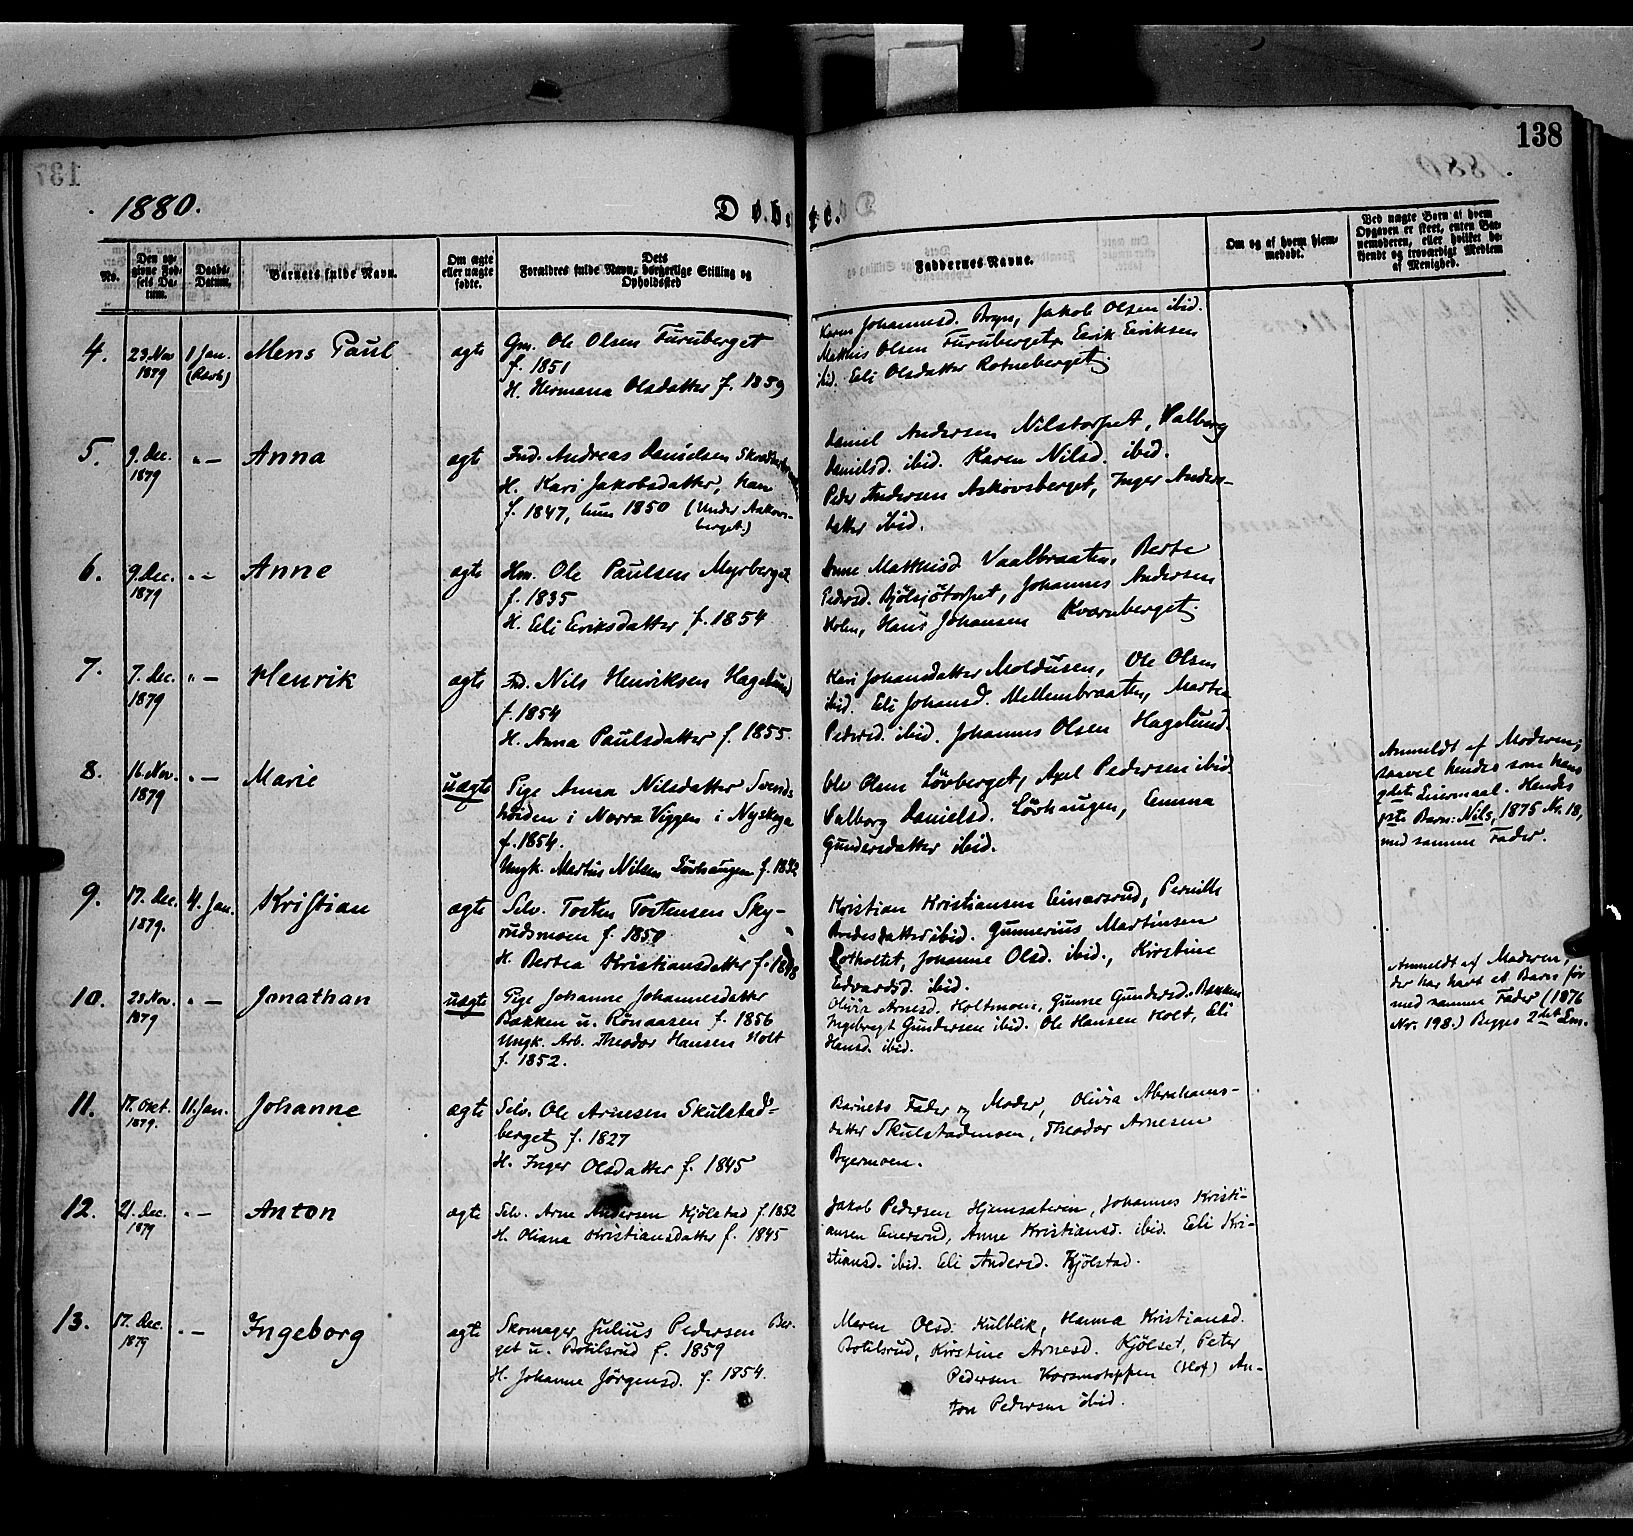 138
1880.
Döbte.
No.
Den opgivne Fødsels Datum.
Daabs-Datum.
Barnets fulde Navn.
Om ægte eller uægte fødte.
Dets Forældres fulde Navn, borgerlige Stilling og Opholdssted
Faddernes Navne.
Om og af hvem hjemmedøbt.
Ved uægte Børn af hvem Opgaven er skeet, enten Barnemoderen, eller hvilket bekjendt og troværdigt Medlem af Menighed.
4.
23. Nov
1879
1 Jan.
Mens Paul
ægte
Gm. Ole Olsen Furuberget
f. 1851
H. Hermana Olsdatter f. 1859
Karen Johannesd. Jakob Olsen ibid.
Mathis Olsen Furuberget, Eerik Eeriksen
ibid. Eeli Olsdatter Rotneberget.
5.
9. Dec.
1879
" —
Anna
ægt
Ind. Andreas Danielsen
H. Kari Jakobsdatter, han
f. 1847, hun 1850 (Under Aaskovs-
berget.)
Daniel Andersen Nilstorpet, Valborg
Danielsd. ibid. Karen Nilsd. ibid.
Peder Andersen Askovsberget, Inger Anders-
datter ibid.
6.
9. Dec.
1879
" —
Anne
ægte
Hm. Ole Paulsen Myrberget
f. 1835
H. Eeli Eeriksdatter f. 1854
Anne Matthisd Vaalbraaten, Berte
Pedersd. Bjölsjötorpet, Johannes Andersen
Holen, Hans Johansen Kvarnberget.
7.
7. Dec.
1879
" —
Henrik
ægte
Ind. Nils Henriksen Hagelund
f. 1854
H. Anna Paulsdatter f. 1855.
Kari Johansdatter Moldusen, Ole Olsen
ibid. Eeli Johansd. Mellembraaten, Martea
Pedersd. ibid. Johannes Olsen Hagelund.
8.
16. Nov.
1879
" —
Marie
uægte
Pige Anna Nilsdatter Svends-
höiden i Norra Viggen i Nyskoga
f. 1854.
Ungk. Martius Nilsen Lövhaugen f. 1852
Ole Olsen Lövberget, Axel Pedersen ibid
Valborg Danielsd. Lövhaugen, Eemma
Gundersdatter ibid.
Anmeldt af Moderen;
saavel hendes som hans
2det Leiermaal. Hendes
1ste Barn: Nils, 1875 Nr. 18,
med samme Fader.
9.
17. Dec.
1879.
4. Jan.
Kristian
ægte
Selv. Tosten Tostensen Sky-
rudsmoen f. 1850
H. Bertea Kristiansdatter f. 1848
Kristian Kristiansen Einarsrud, Pernille
Bredesdatter ibid. Gunnerius Martinsen
Rotholtet, Johanne Olsd. ibid., Kirstine
Edvardsd. ibid.
10.
28. Nov.
1879
" —
Jonathan
uægte
Pige Johanne Johannesdatter
Bakken u. Rönaasen f. 1856
Ungk. Arb. Theodor Hansen Holt
f. 1852.
Olivia Arnesd. Holtmoen, Gunne Gundersd. Bakken
Ingebregt Gundersen ibid. Ole Hansen Holt, Eli
Hansd. ibid.
Anmeldt af Moderen,
der har havt et Barn för
med samme Fader (1876
Nr. 198.) Begges 2det Lm.
11.
17. Okt.
1879.
11. Jan.
Johanne
ægte
Selv. Ole Arnesen Skulstad-
berget f. 1827
H. Inger Olsdatter f. 1845
Barnets Fader og Moder, Olivia Abrahams-
datter Skulstadmoen, Theodor Arnesen
Byermoen.
12.
21. Dec.
1879
" —
Anton
ægte
Selv. Arne Andersen Kjölstad f. 1852
H. Oliana Kristiansdatter f. 1845
Jakob Pedersen Hjemsæteren, Johannes Kristi-
ansen Enersrud, Anne Kristiansd. ibid. Eeli Kri-
stiansd. ibid. Eeli Andersd. Kjölstad.
13.
17. Dec.
1879
" —
Ingeborg
ægte
Skomager Julius Pedersen Ber-
get u. Botilsrud f. 1859
H. Johanne Jörgensd. f. 1854.
Maren Olsd. Kulblik, Hanna Kristiansd.
Botilsrud, Kirstine Arnesd. Kjölset, Peter
Pedersen Korsmotippen (Hof) An-
ton Pedersen ibid.